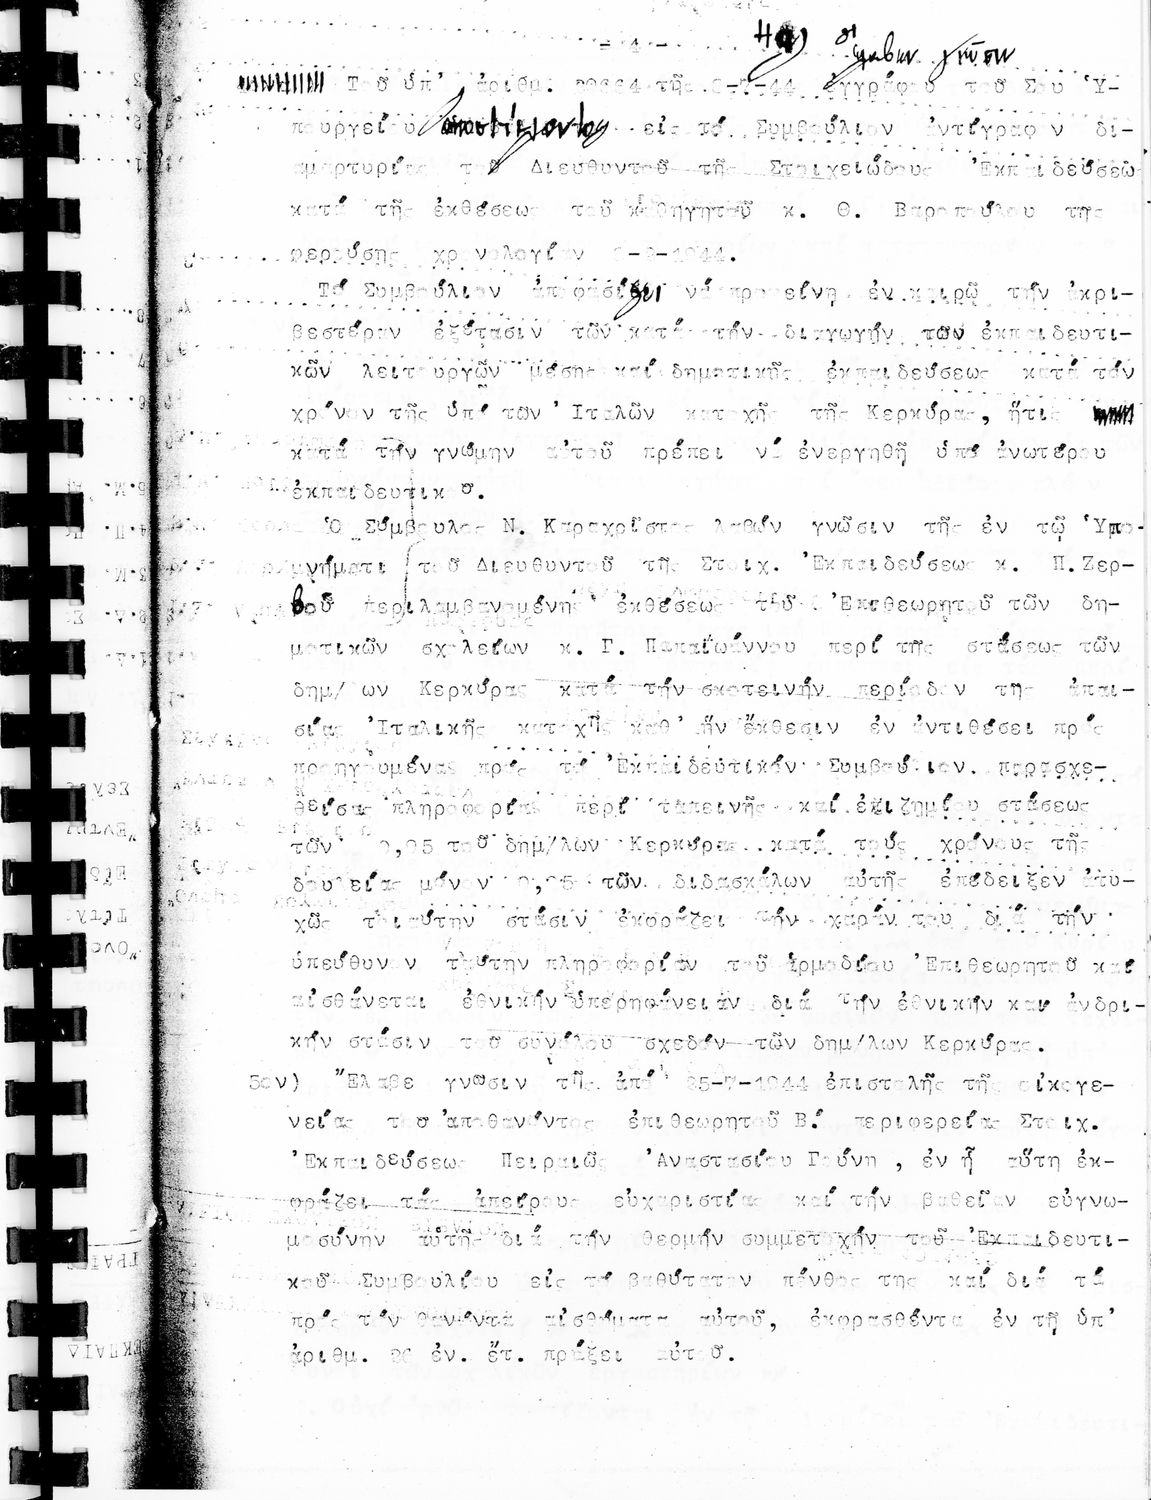 - 4 -
4ον) ἔλαβεν γνῶσιν
Τοῦ ὑπ' ἀριθμ. τῆς -7-44 ἐγγράφου τοῦ Σοῦ Ὑ-
πουργείου εἰς τό Συμβούλιον ἀντίγραφον δι-
αμαρτυρίας τοῦ Διευθυντοῦ τῆς Στοιχειώδους Ἐκπαιδεύσεως
κατά τῆς ἐκθέσεως τοῦ καθηγητοῦ κ. Θ. Βαροπούλου της
φερούσης χρονολογίαν -1944.
Τό Συμβούλιον ἀποφασίζει νά προτείνη ἐν καιρῷ τήν ἀκρι-
βεστέραν ἐξέτασιν τῶν κατά τήν διαγωγήν των ἐκπαιδευτι-
κῶν λειτουργῶν μέσης καί δημοτικῆς ἐκπαιδεύσεως κατά τόν
χρόνον τῆς ὑπό των Ἰταλῶν κατοχῆς τῆς Κερκύρας, ἥτις
κατά τήν γνώμην αὐτοῦ πρέπει νά ἐνεργηθῆ ὑπό ἀνωτέρου
ἐκπαιδευτικου.
Ὁ Σύμβουλος Ν. Καραχρίστος λαβών γνῶσιν τῆς ἐν τῷ Ὑπο-
μνήματι τοῦ Διευθυντοῦ τῆς Στοιχ. Ἐκπαιδεύσεως κ. Π.Ζερ-
βοῦ περιλαμβανομένης ἐκθέσεως τοῦ Ἐπιθεωρητοῦ τῶν δη-
μοτικῶν σχολείων κ. Γ. Παπαϊωάννου περί τῆς στάσεως τῶν
δημ/ ων Κερκύρας κατά τήν σκοτεινήν περίοδον της ἀπαι-
σίας Ἰταλικῆς κατοχῆς καθ' ἥν ἔκθεσιν ἐν ἀντιθέσει πρός
προηγουμένας πρός τό Ἐκπαιδευτικόν Συμβούλιον παρασχε-
θείσας πληροφορίας περί ταπεινῆς καί ἐπιζημίου στάσεως
τῶν 0,95 τοῦ δημ/λων Κερκύρας κατά τούς χρόνους τῆς
δουλείας μόνον 0,05 τῶν διδασκάλων αὐτῆς ἐπέδειξεν ἀτυ-
χῶς τοιαύτην στάσιν ἐκφράζει τήν χαράν του διά τήν
ὑπεύθυνον ταύτην πληροφορίαν τοῦ ἁρμοδίου Ἐπιθεωρητοῦ καί
αἰσθάνεται ἐθνικήν ὑπερηφάνειαν διά τήν ἐθνικήν και ἀνδρι-
κήν στάσιν τοῦ συνόλου σχεδόν τῶν δημ/λων Κερκύρας.
5ον) Ἔλαβε γνωσιν τῆς ἀπό 25-7-1944 ἐπιστολῆς τῆς οἰκογε-
νείας του ἀποθανόντος ἐπιθεωρητοῦ Β΄ περιφερείας Στοιχ.
Ἐκπαιδεύσεως Πειραιῶς Ἀναστασίου Γούνη , ἐν ᾗ αὕτη ἐκ-
φράζει τάς ἀπείρους εὐχαριστίας καί τήν βαθεῖαν εὐγνω-
μοσύνην αὐτῆς διά τήν θερμήν συμμετοχήν τοῦ Ἐκπαιδευτι-
κοῦ Συμβουλίου εἰς τό βαθύτατον πένθος της καί διά τά
πρός τόν θανόντα αἰσθήματα αὐτοῦ, ἐκφρασθέντα ἐν τῇ ὑπ'
ἀριθμ. ἐν. ἔτ. πράξει αὐτοῦ.